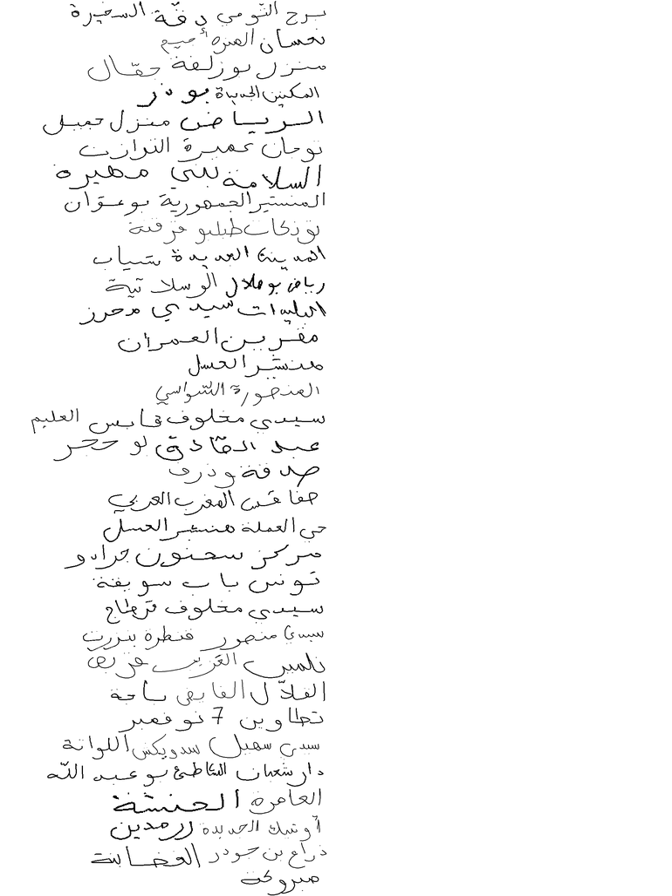 برج التومي دقّة السخيرة
نحسان المنزه أميم
منزل بوزلفة جمّال
المكنين الجديدة بوذر
الرياض منزل جميل
نوحان عميرة التوازن
السلامة بني مهيرة
المنستير الجمهورية بوعوّان
بوزكات طبلبو قرقنة
المدينة الجديدة شباب
رياض بوهلال الوسلاتية
البليدات سيدي محرز
مقرين العمران
هنشير العسل
المنصورة الشواسي
سيدي مخلوف قابس العليم
عبد الصّادق بو حجر
صدقة وذرف
صفاقس المغرب العربي
حي العملة هنشير العسل
مركز سحنون جرادو
تونس باب سويقة
سيدي مخلوف قرطاج
سيدي منصور قنطرة بنزرت
تلمين الغريب
القلاّل الفايض باجة
تطاوين 7 نوفمبر
سيدي سهيل سدويكس اللواتة
دار شعبان الشاطئ بو عبد الله
العامرة الحنشة
أوتيك الجديدة رمدين
ذراع بن جودر الغضابنة
مبروكة